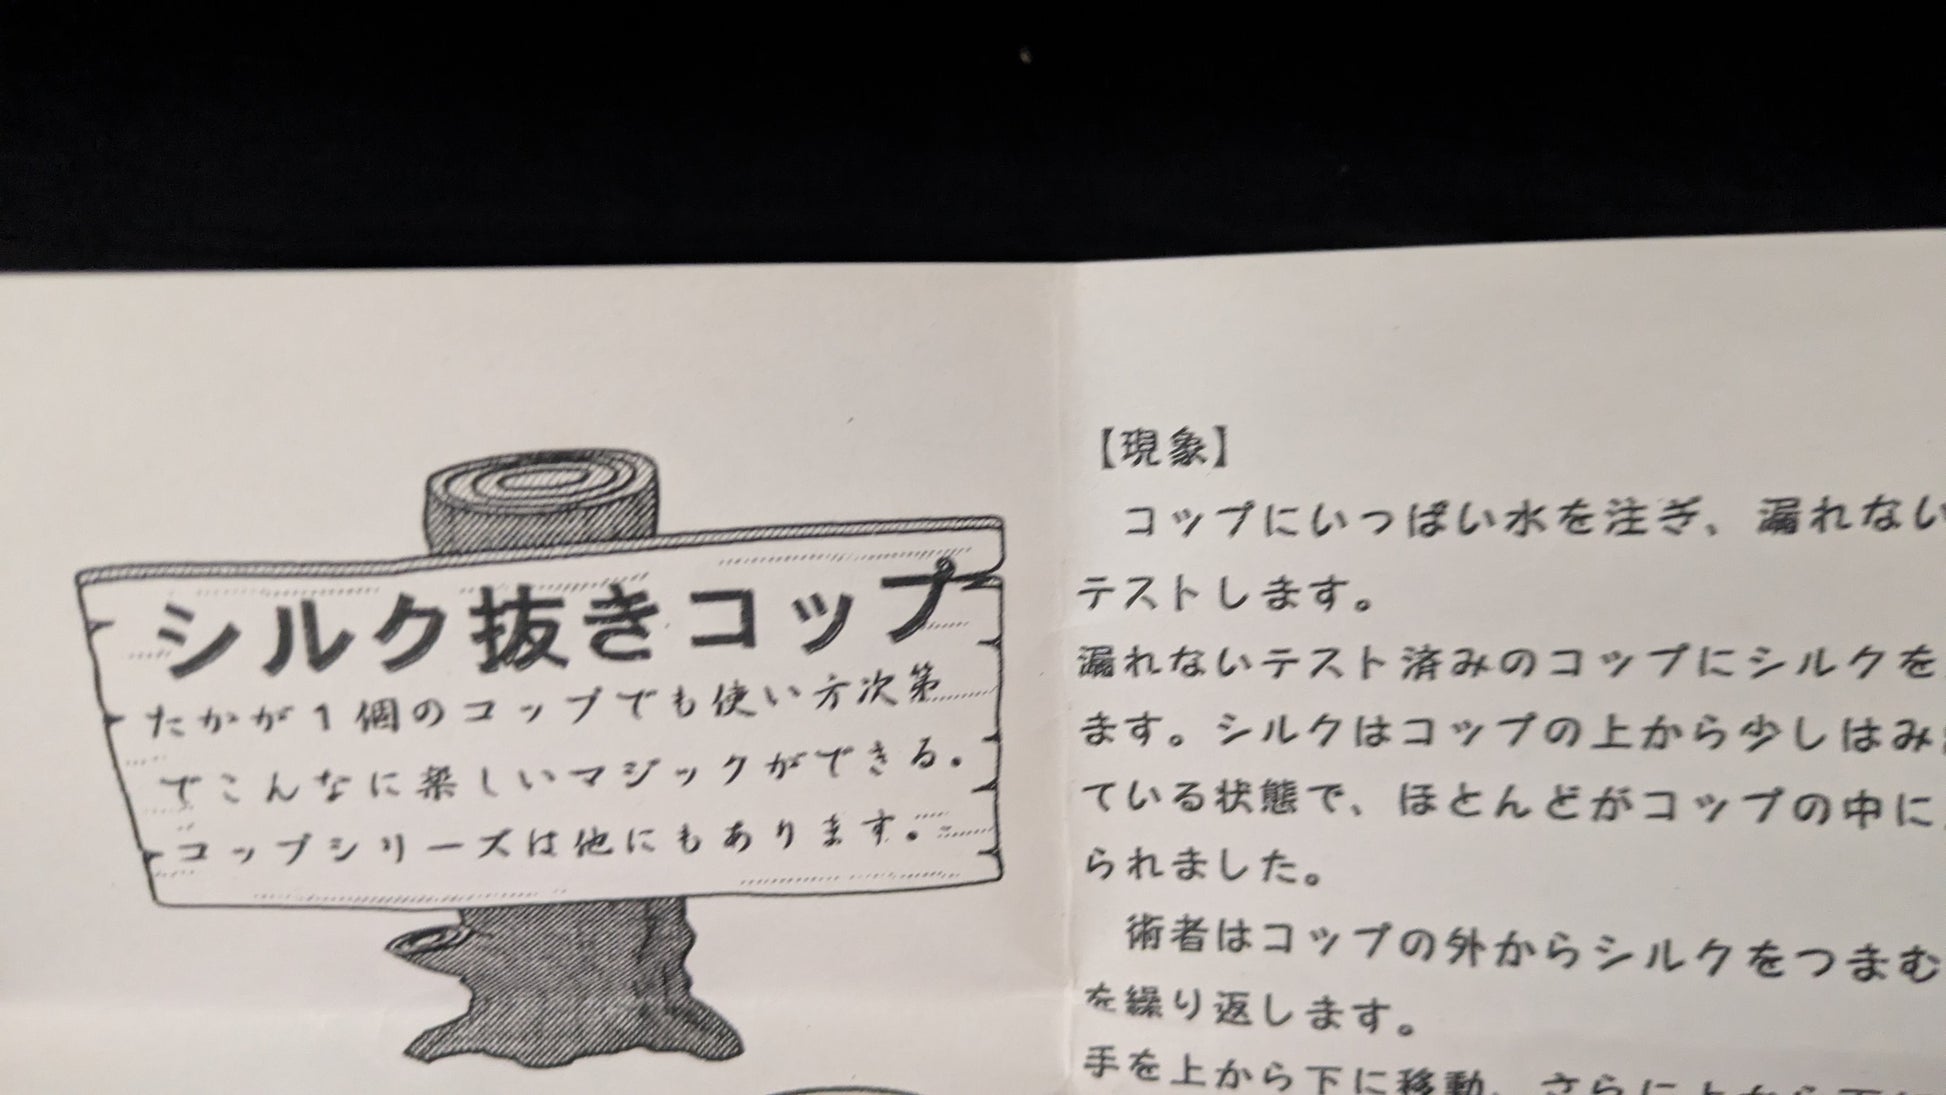 シルク抜きコップ
たかが1個のコップでも使い方次第
でこんなに楽しいマジックができる。
コップシリーズは他にもあります。
【現象】
コップにいっぱい水を注ぎ、漏れない
テストします。
漏れないテスト済みのコップにシルクを
ます。シルクはコップの上から少しはみ
ている状態で、ほとんどがコップの中に
られました。
術者はコップの外からシルクをつまむ
を繰り返します。
手を上から下に移動、さらに上から下に